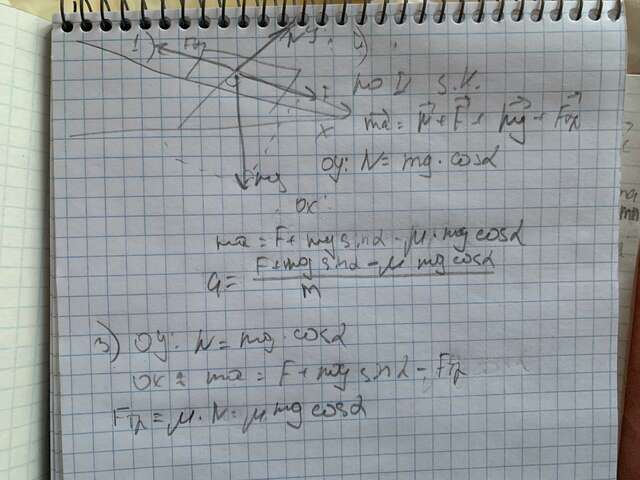 1) Fтр N y 4)
F
по II з.Н.
x ma⃗ = N⃗ + F⃗ + mg⃗ + F⃗тр
mg oy: N = mg·cosα
ox:
ma = F + mg sinα - μ·mg cosα
a = F + mg sinα - μ mg cosα / m
3) oy: N = mg·cosα
ox: ma = F + mg sinα - Fтр
Fтр = μ·N = μ mg cosα